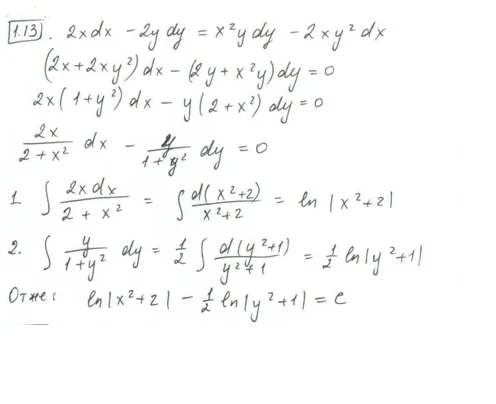 1.13. 2xdx - 2y dy = x²y dy - 2xy² dx
(2x + 2xy²) dx - (2y + x²y) dy = 0
2x(1+y²) dx - y(2+x²) dy = 0
2x/(2+x²) dx - y/(1+y²) dy = 0
1. ∫ 2xdx/(2+x²) = ∫ d(x²+2)/(x²+2) = ln|x²+2|
2. ∫ y/(1+y²) dy = 1/2 ∫ d(y²+1)/(y²+1) = 1/2 ln|y²+1|
Отже: ln|x²+2| - 1/2 ln|y²+1| = C